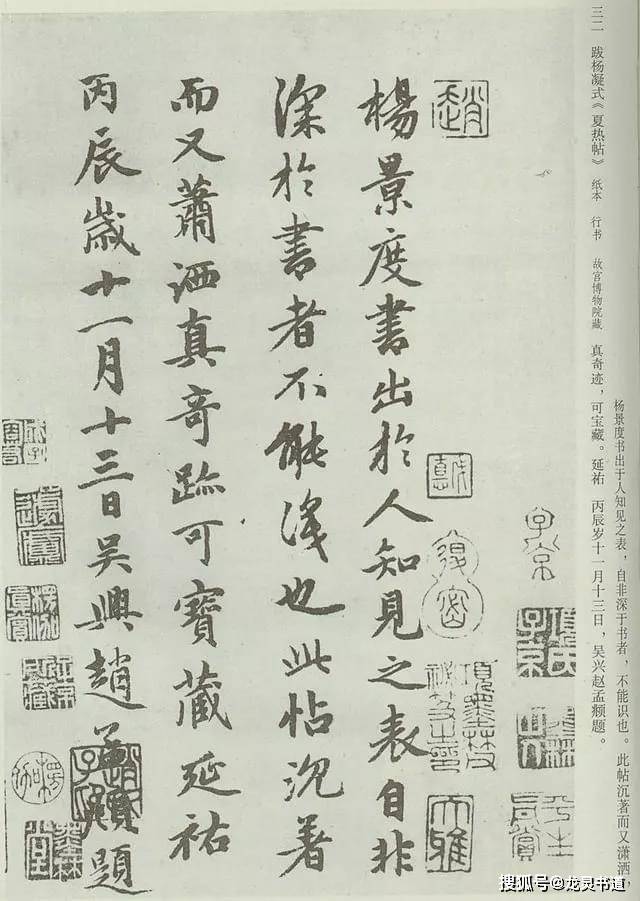 三二 跋杨凝式《夏热帖》 纸本 行书 故宫博物院藏
杨景度书出于人知见之表，自非深于书者，不能识也。此帖沉著而又潇洒，
真奇迹，可宝藏。延祐 丙辰岁十一月十三日，吴兴赵孟頫题。
子京
趙
大雅
楊景度書出於人知見之表自非
深於書者不能淺也此帖沉著
而又蕭洒真奇跡可寶藏延祐
丙辰歲十一月十三日吳興趙孟頫題
搜狐号@龙灵书道